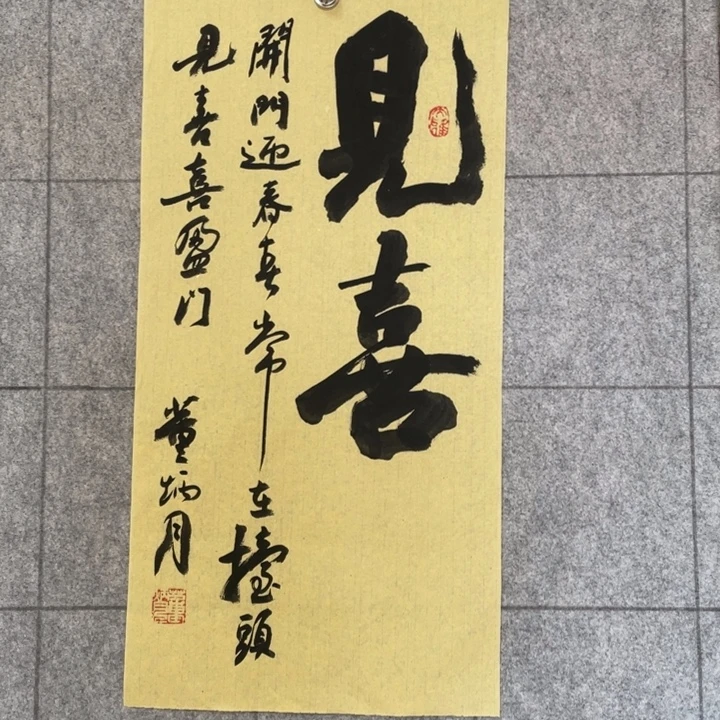 見喜
開門迎春喜常在擡頭
見喜喜盈门
董炳月